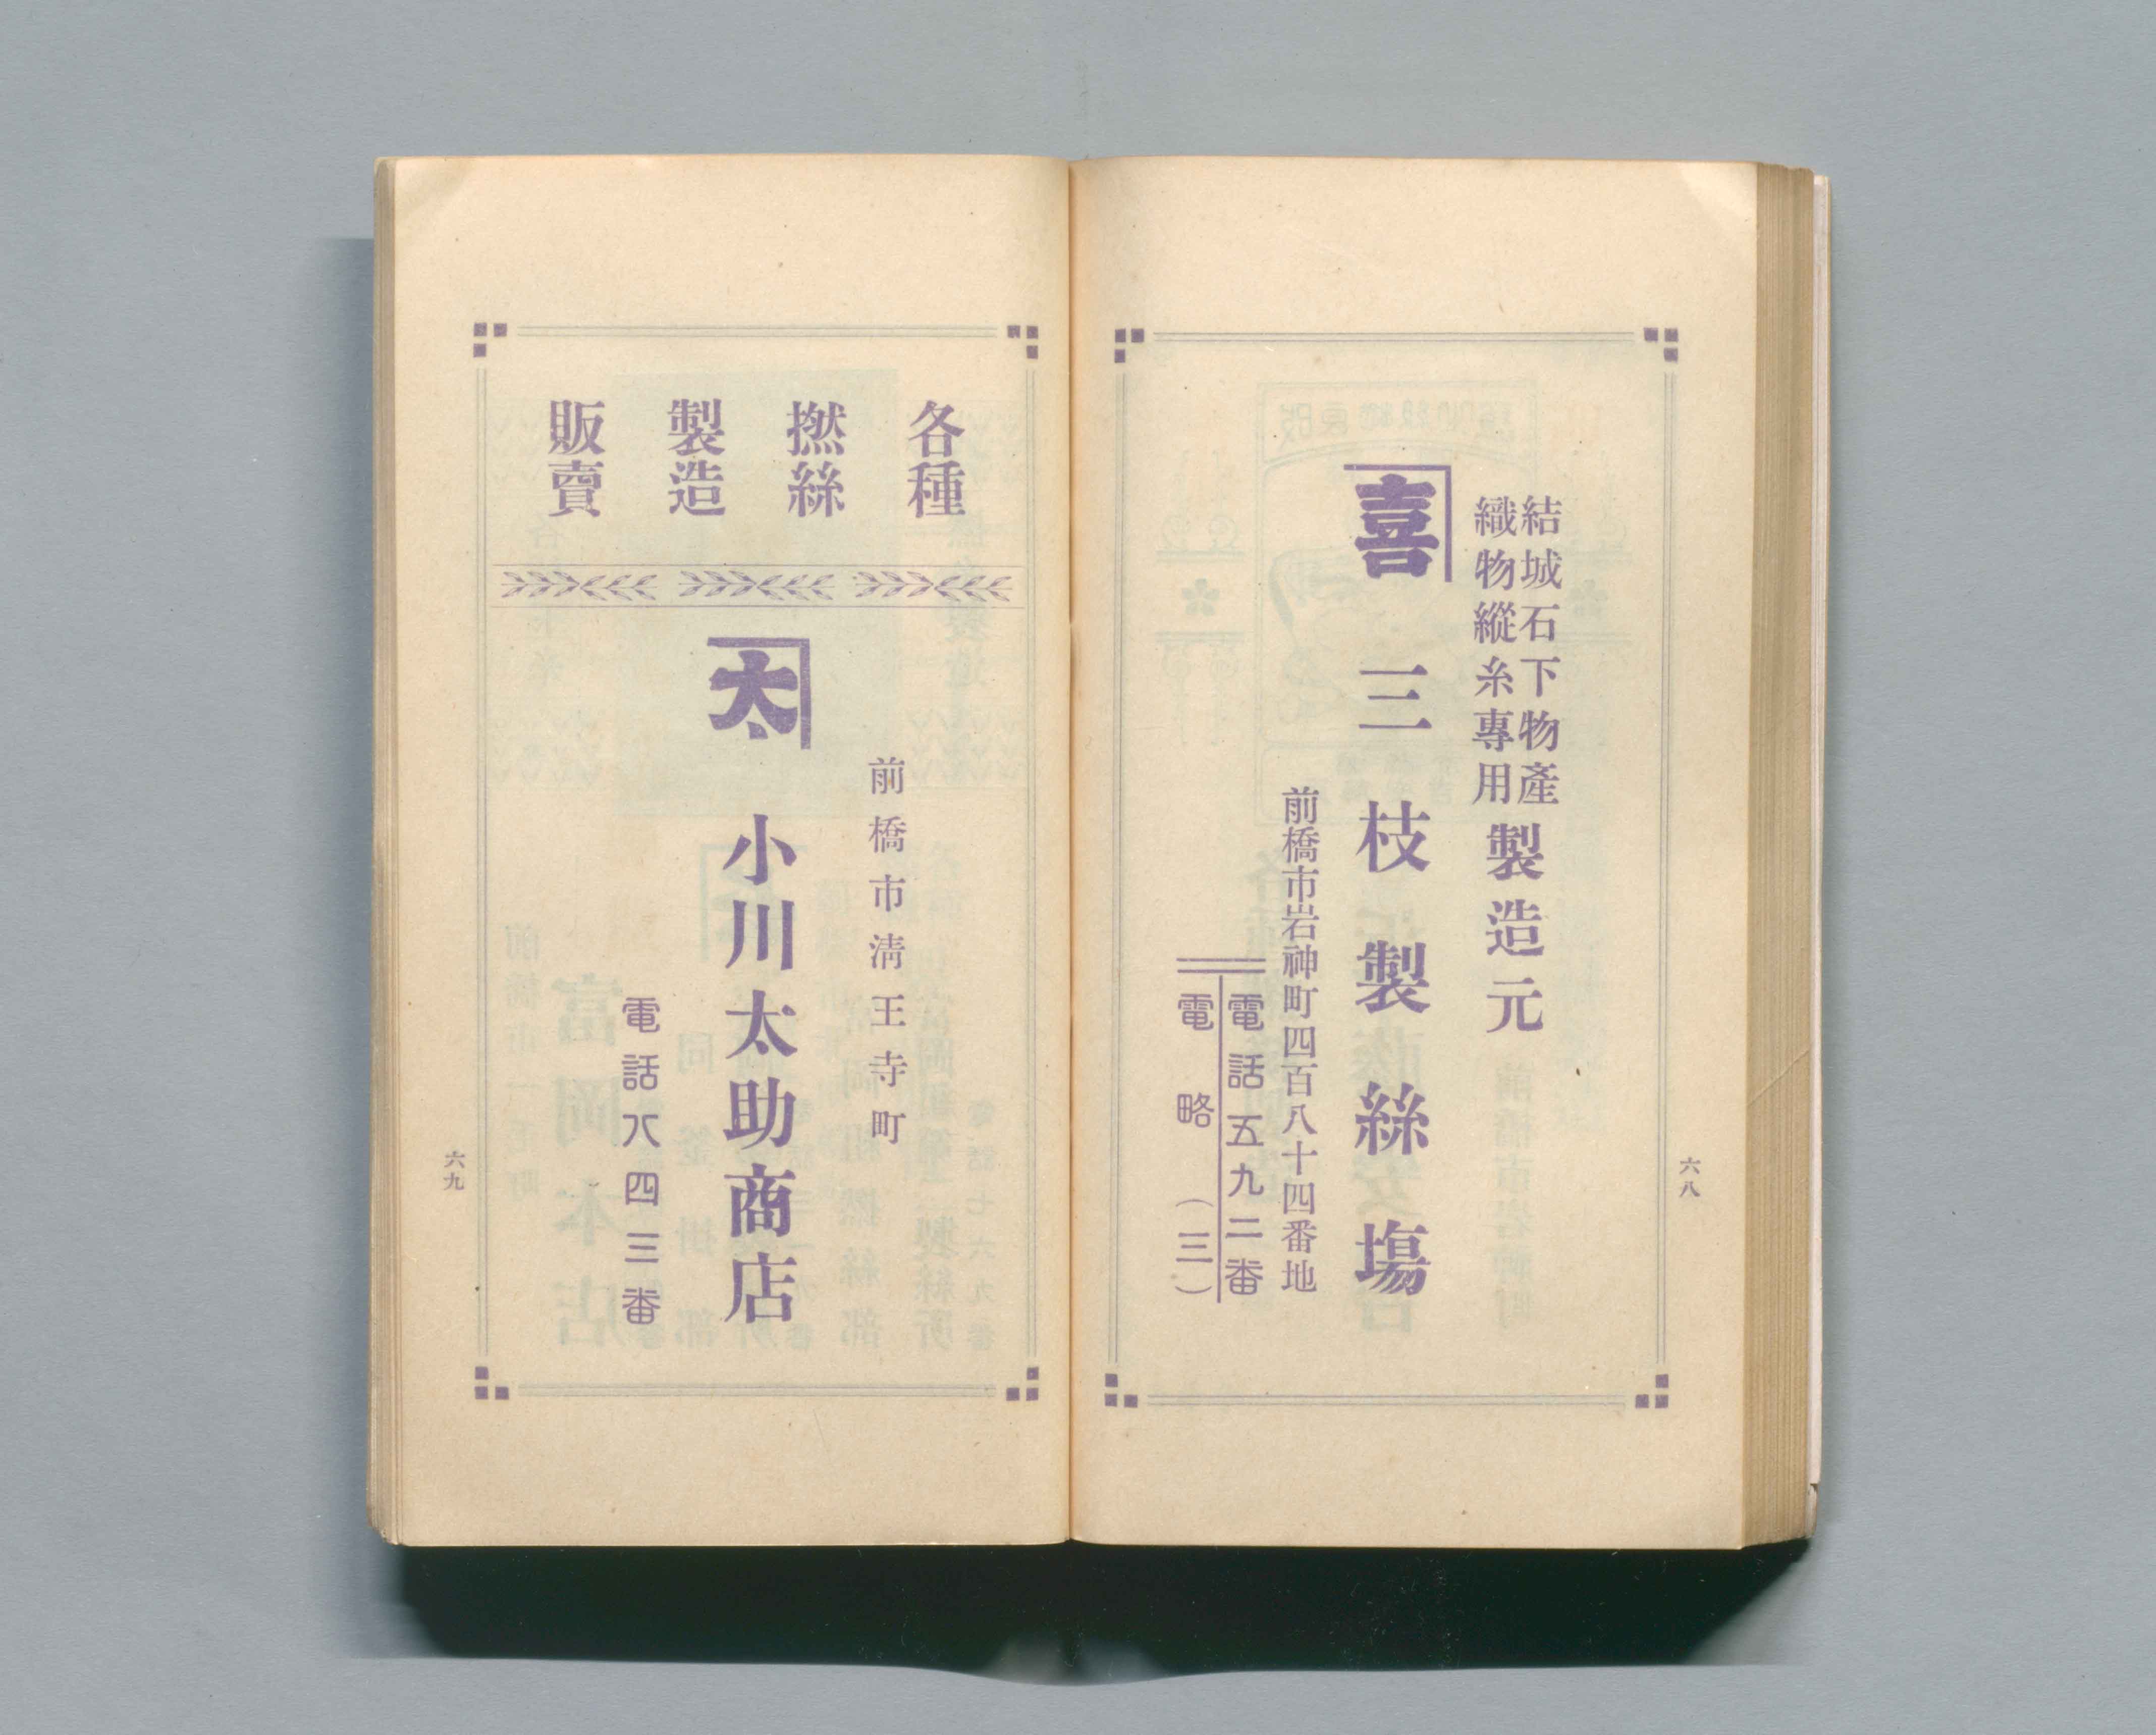 結城石下物產
織物縱糸專用
製造元
喜
三枝製絲場
前橋市岩神町四百八十四番地
電話五九二番
電略（三）
六八
各種
撚絲
製造
販賣
前橋市淸王寺町
太
小川太助商店
電話八四三番
六九